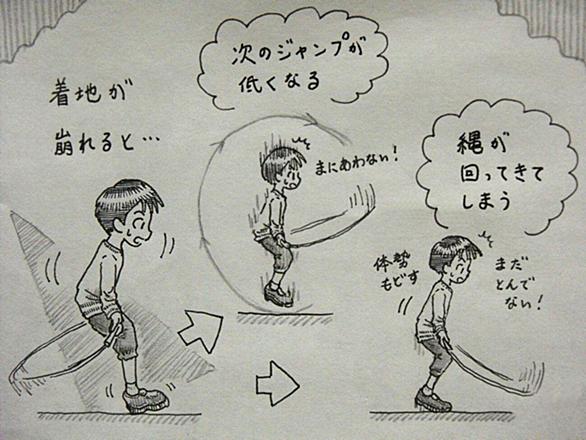 着地が
崩れると…
次のジャンプが
低くなる
まにあわない!
縄が
回ってきて
しまう
体勢
もどす
まだ
とんで
ない!